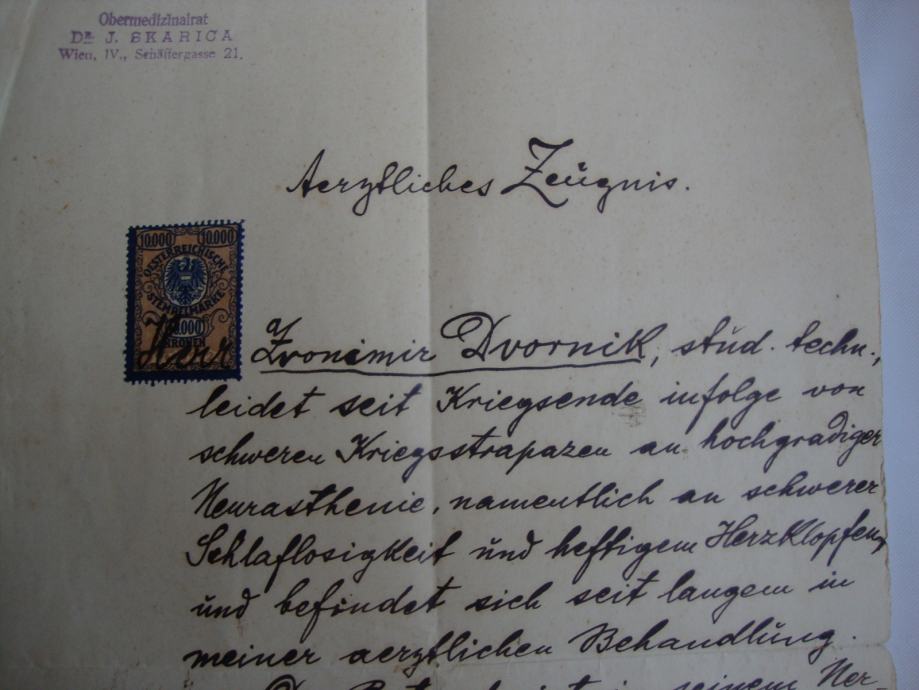 Obermedizinalrat
DR. J. SKARICA
Wien, IV., Schäffergasse 21.
Aerztliches Zeugnis.
10.000 10.000
OESTERREICHISCHE
STEMPELMARKE
10.000
KRONEN
Herr Zvonimir Dvornik, stud. techn.,
leidet seit Kriegsende infolge von
schweren Kriegsstrapazen an hochgradiger
Neurasthenie, namentlich an schwerer
Schlaflosigkeit und heftigem Herzklopfen,
und befindet sich seit langem in
meiner aerztlichen Behandlung.
seinem Ner-